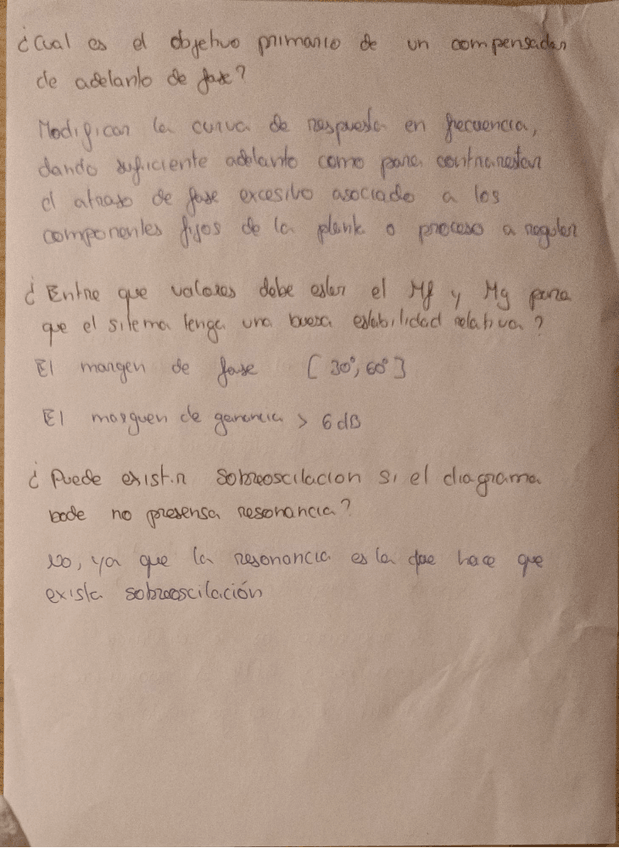 ¿Cual es el objetivo primario de un compensador
de adelanto de fase?
Modificar la curva de respuesta en frecuencia,
dando suficiente adelanto como para contrarrestar
el atraso de fase excesivo asociado a los
componentes fijos de la planta o proceso a regular
¿Entre que valores debe estar el Mf y Mg para
que el sitema tenga una buena estabilidad relativa?
El margen de fase [30°, 60°]
El marguen de ganancia > 6 dB
¿Puede existir sobreoscilacion si el diagrama
bode no presensa resonancia?
No, ya que la resonancia es la que hace que
exista sobreoscilación